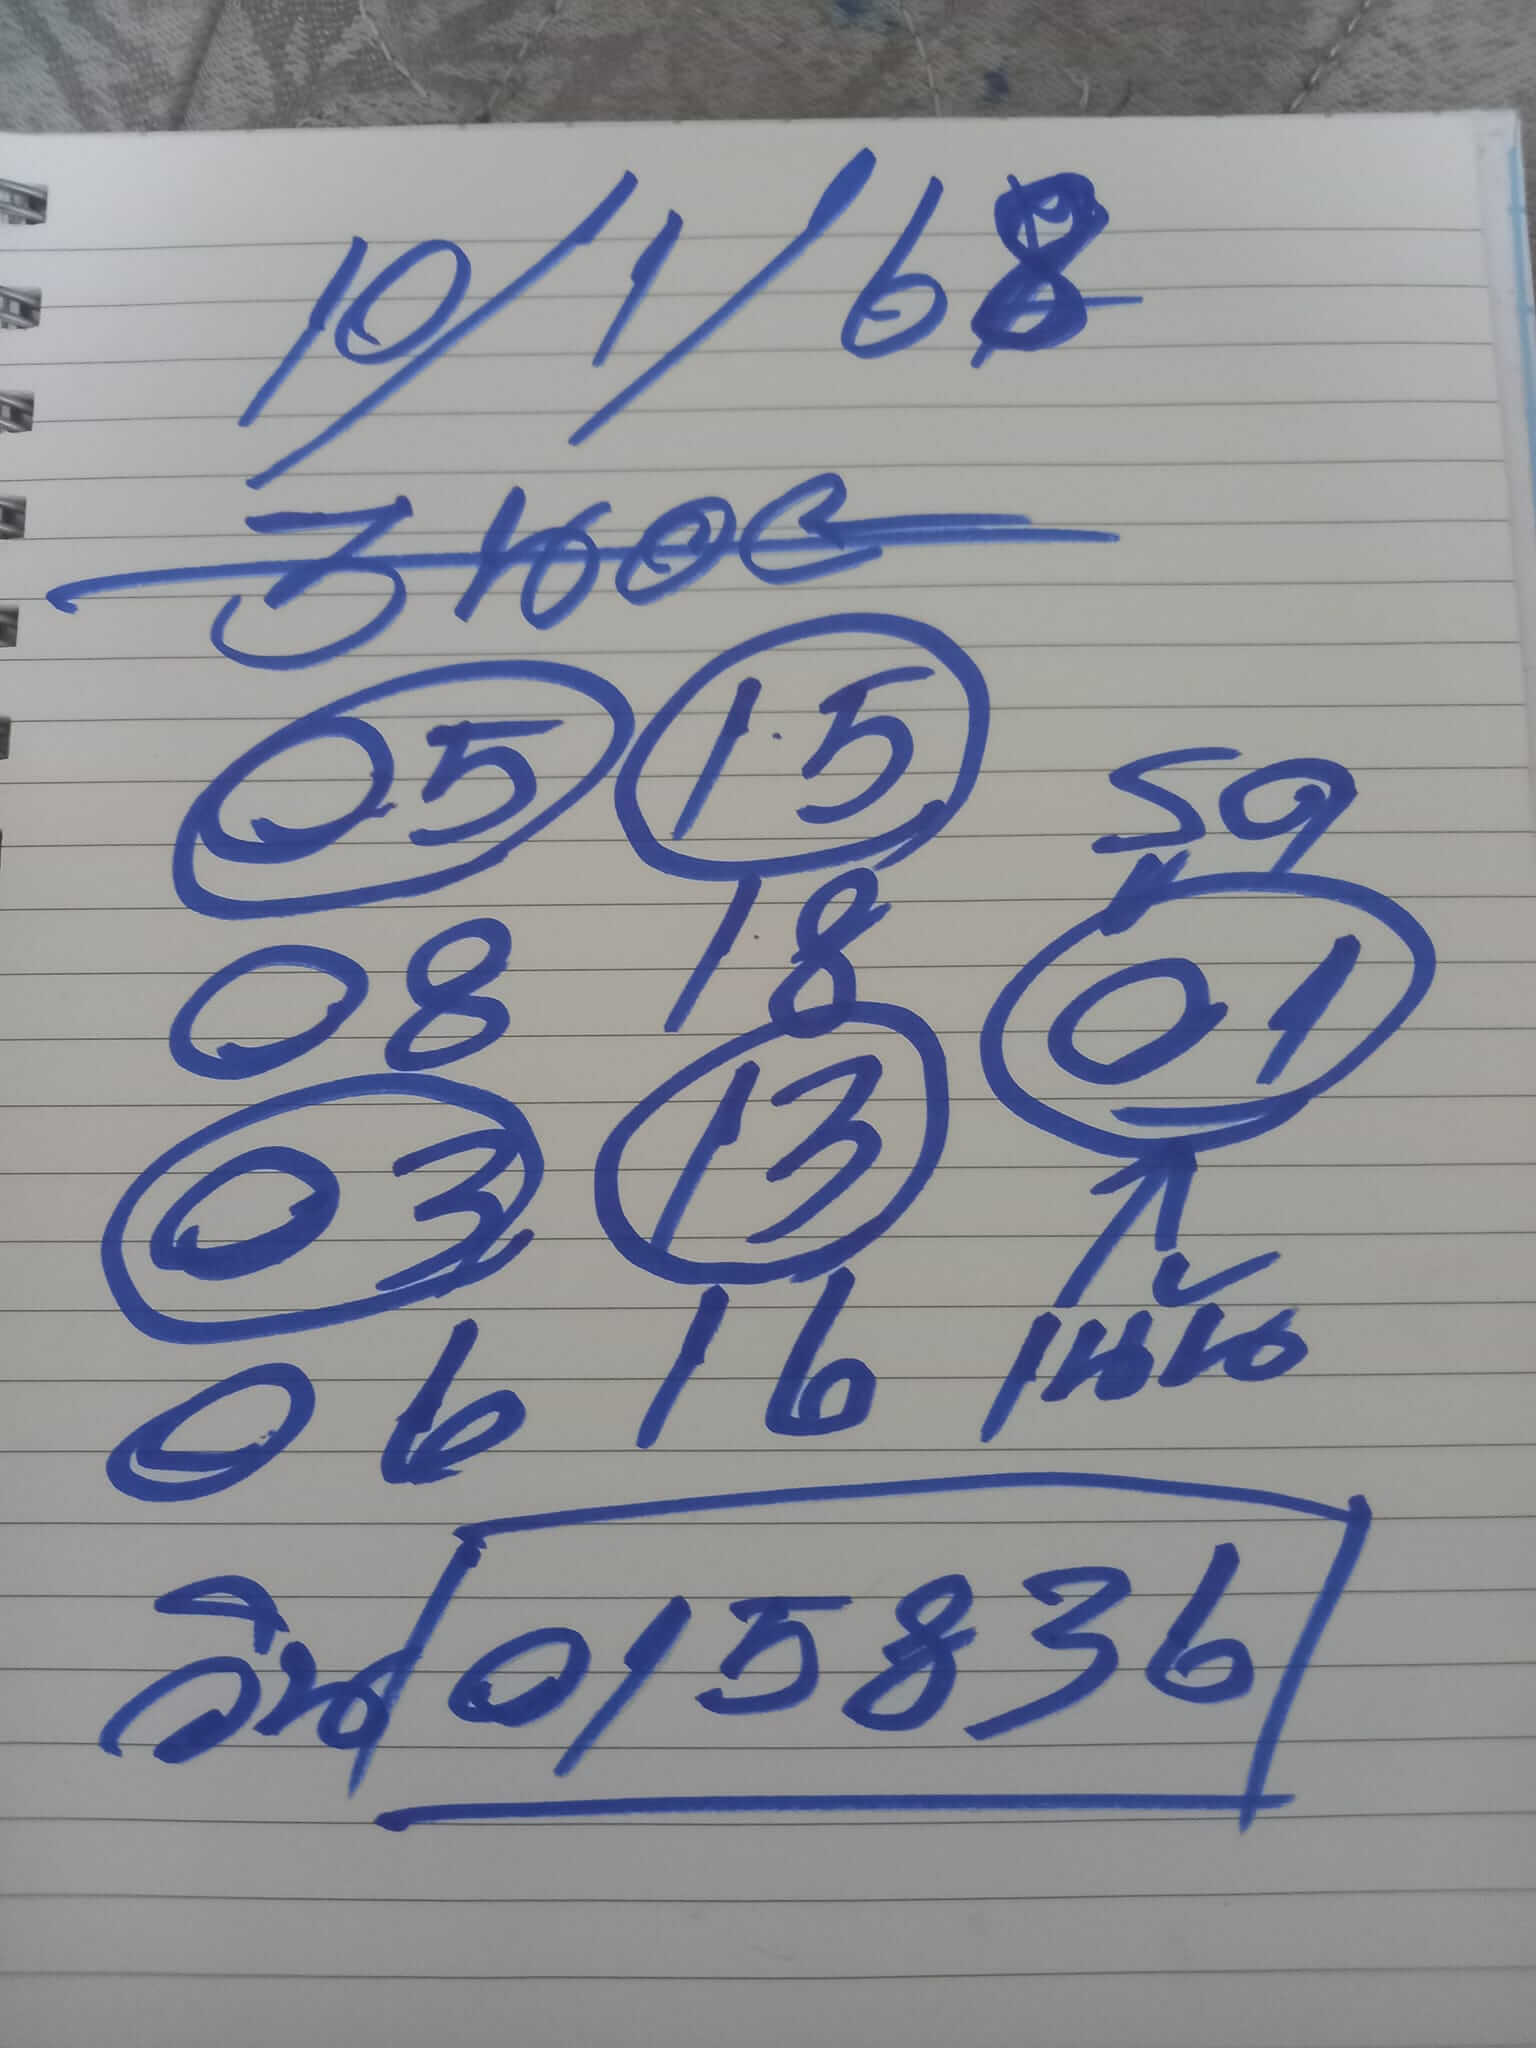 10/1/68
05 15
59
08 18
01
03 13
06 16 เน้น
วิน 015836